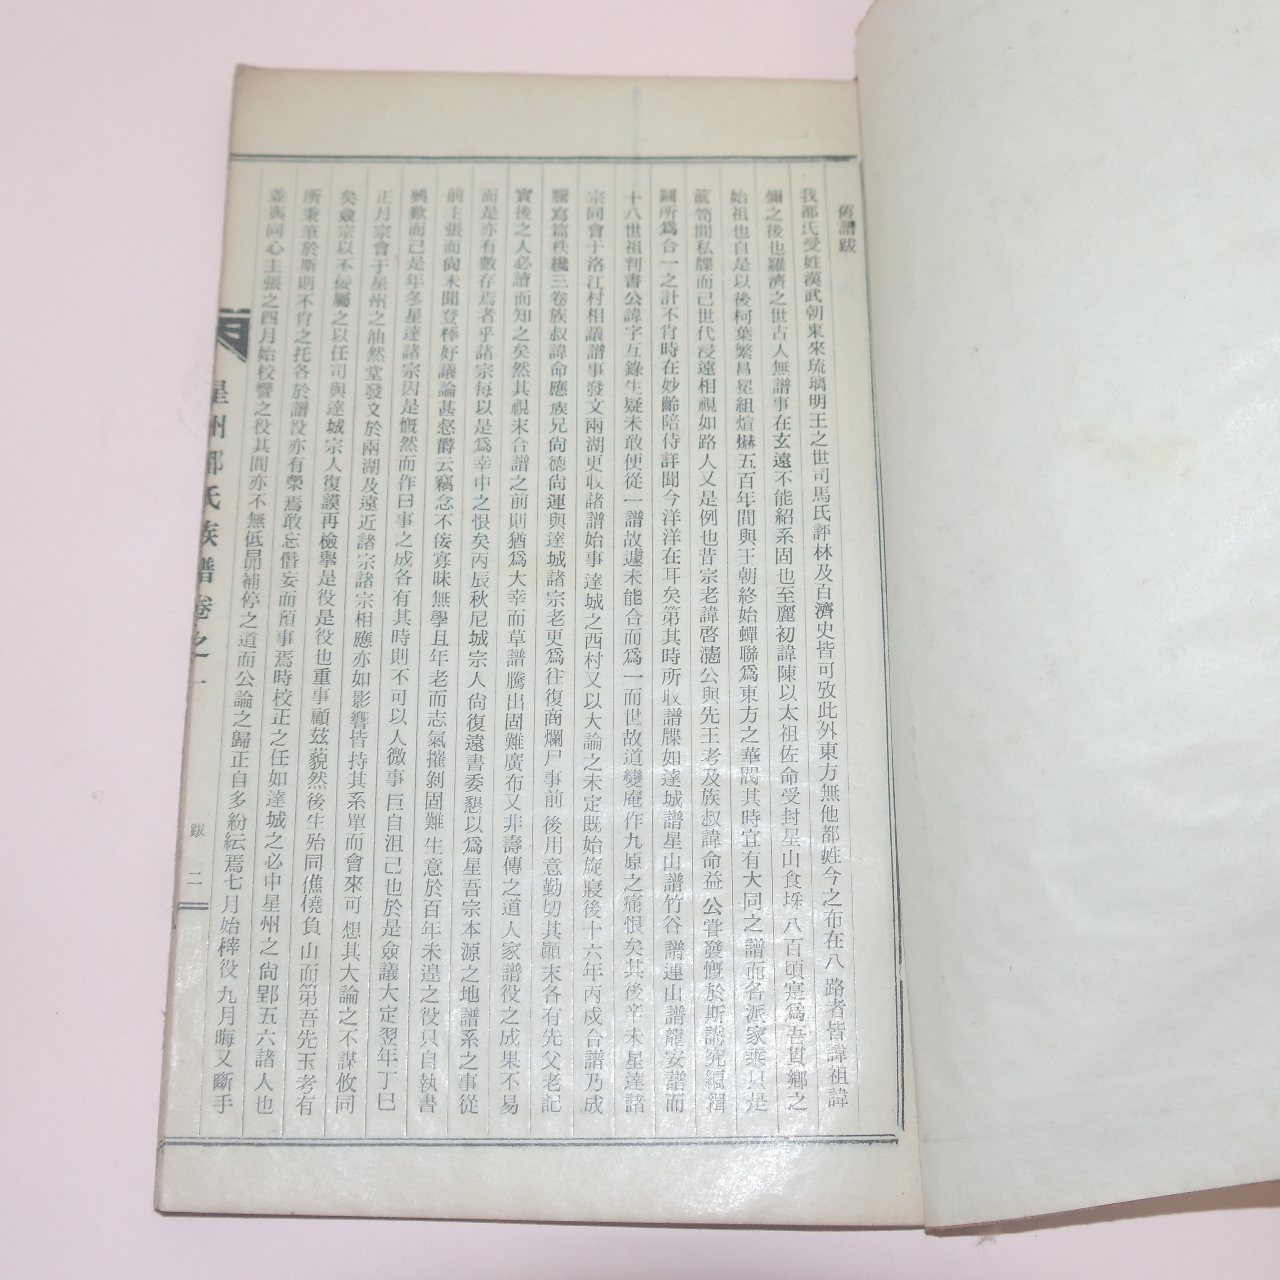 舊譜跋
我都氏受姓漢武朝東來琉璃明王之世司馬氏評林及百濟史皆可攷此外東方無他都姓今之布在八路者皆諱祖諱
彌之後也羅濟之世古人無譜事在玄遠不能紹系固也至麗初諱陳以太祖佐命受封星山食埰八百頃寔爲吾貫鄉之
始祖也自是以後柯葉繁昌冕組煊爀五百年間與王朝終始蟬聯爲東方之華閥其時宜有大同之譜而各派家乘只是
篋笥間私牒而已世代浸遠相視如路人又是例也昔宗老諱啓潓公與先王考及族叔諱命益公甞發慨於斯議究編緝
圖所爲合一之計不肖時在妙齡陪侍詳聞今洋洋在耳矣第其時所収譜牒如達城譜星山譜竹谷譜連山譜龍安譜而
十八世祖判書公諱字互錄生疑未敢便從一譜故遽未能合而爲一而世故道變庵作九原之痛恨矣其後辛未星達諸
宗同會于洛江村相議譜事發文兩湖更収諸譜始事達城之西村又以大論之未定既始旋寢後十六年丙戌合譜乃成
謄寫篇秩纔三卷族叔諱命應族兄尙德尙運與達城諸宗老更爲往復商爛尸事前後用意勤切其顚末各有先父老記
實後之人必讀而知之矣然其視末合譜之前則猶爲大幸而草譜騰出固難廣布又非壽傳之道人家譜役之成果不易
而是亦有數存焉者乎諸宗每以是爲幸中之恨矣丙辰秋尼城宗人尙復遠書委懇以爲星吾宗本源之地譜系之事從
前主張而尙未聞登梓好議論甚悤欝云竊念不侫寡昧無學且年老而志氣摧剝固難生意於百年未遑之役只自執書
興歎而已是年冬星達諸宗因是慨然而作曰事之成各有其時則不可以人微事巨自沮己也於是僉議大定翌年丁巳
正月宗會于星州之油然堂發文於兩湖及遠近諸宗諸宗相應亦如影響皆持其系單而會來可想其大論之不謀攸同
矣僉宗以不侫屬之以任司與達城宗人復謨再檢擧是役是役也重事顧玆藐然後生殆同僬僥負山而第吾先王考有
所秉筆於斯則不肖之托各於譜役亦有榮焉敢忘僭妄而預事焉時校正之任如達城之必中星州之尙郢五六諸人也
並與同心主張之四月始校讐之役其間亦不無低昻補停之道而公論之歸正自多紛紜焉七月始梓役九月晦又斷手
星州都氏族譜卷之一
跋
二